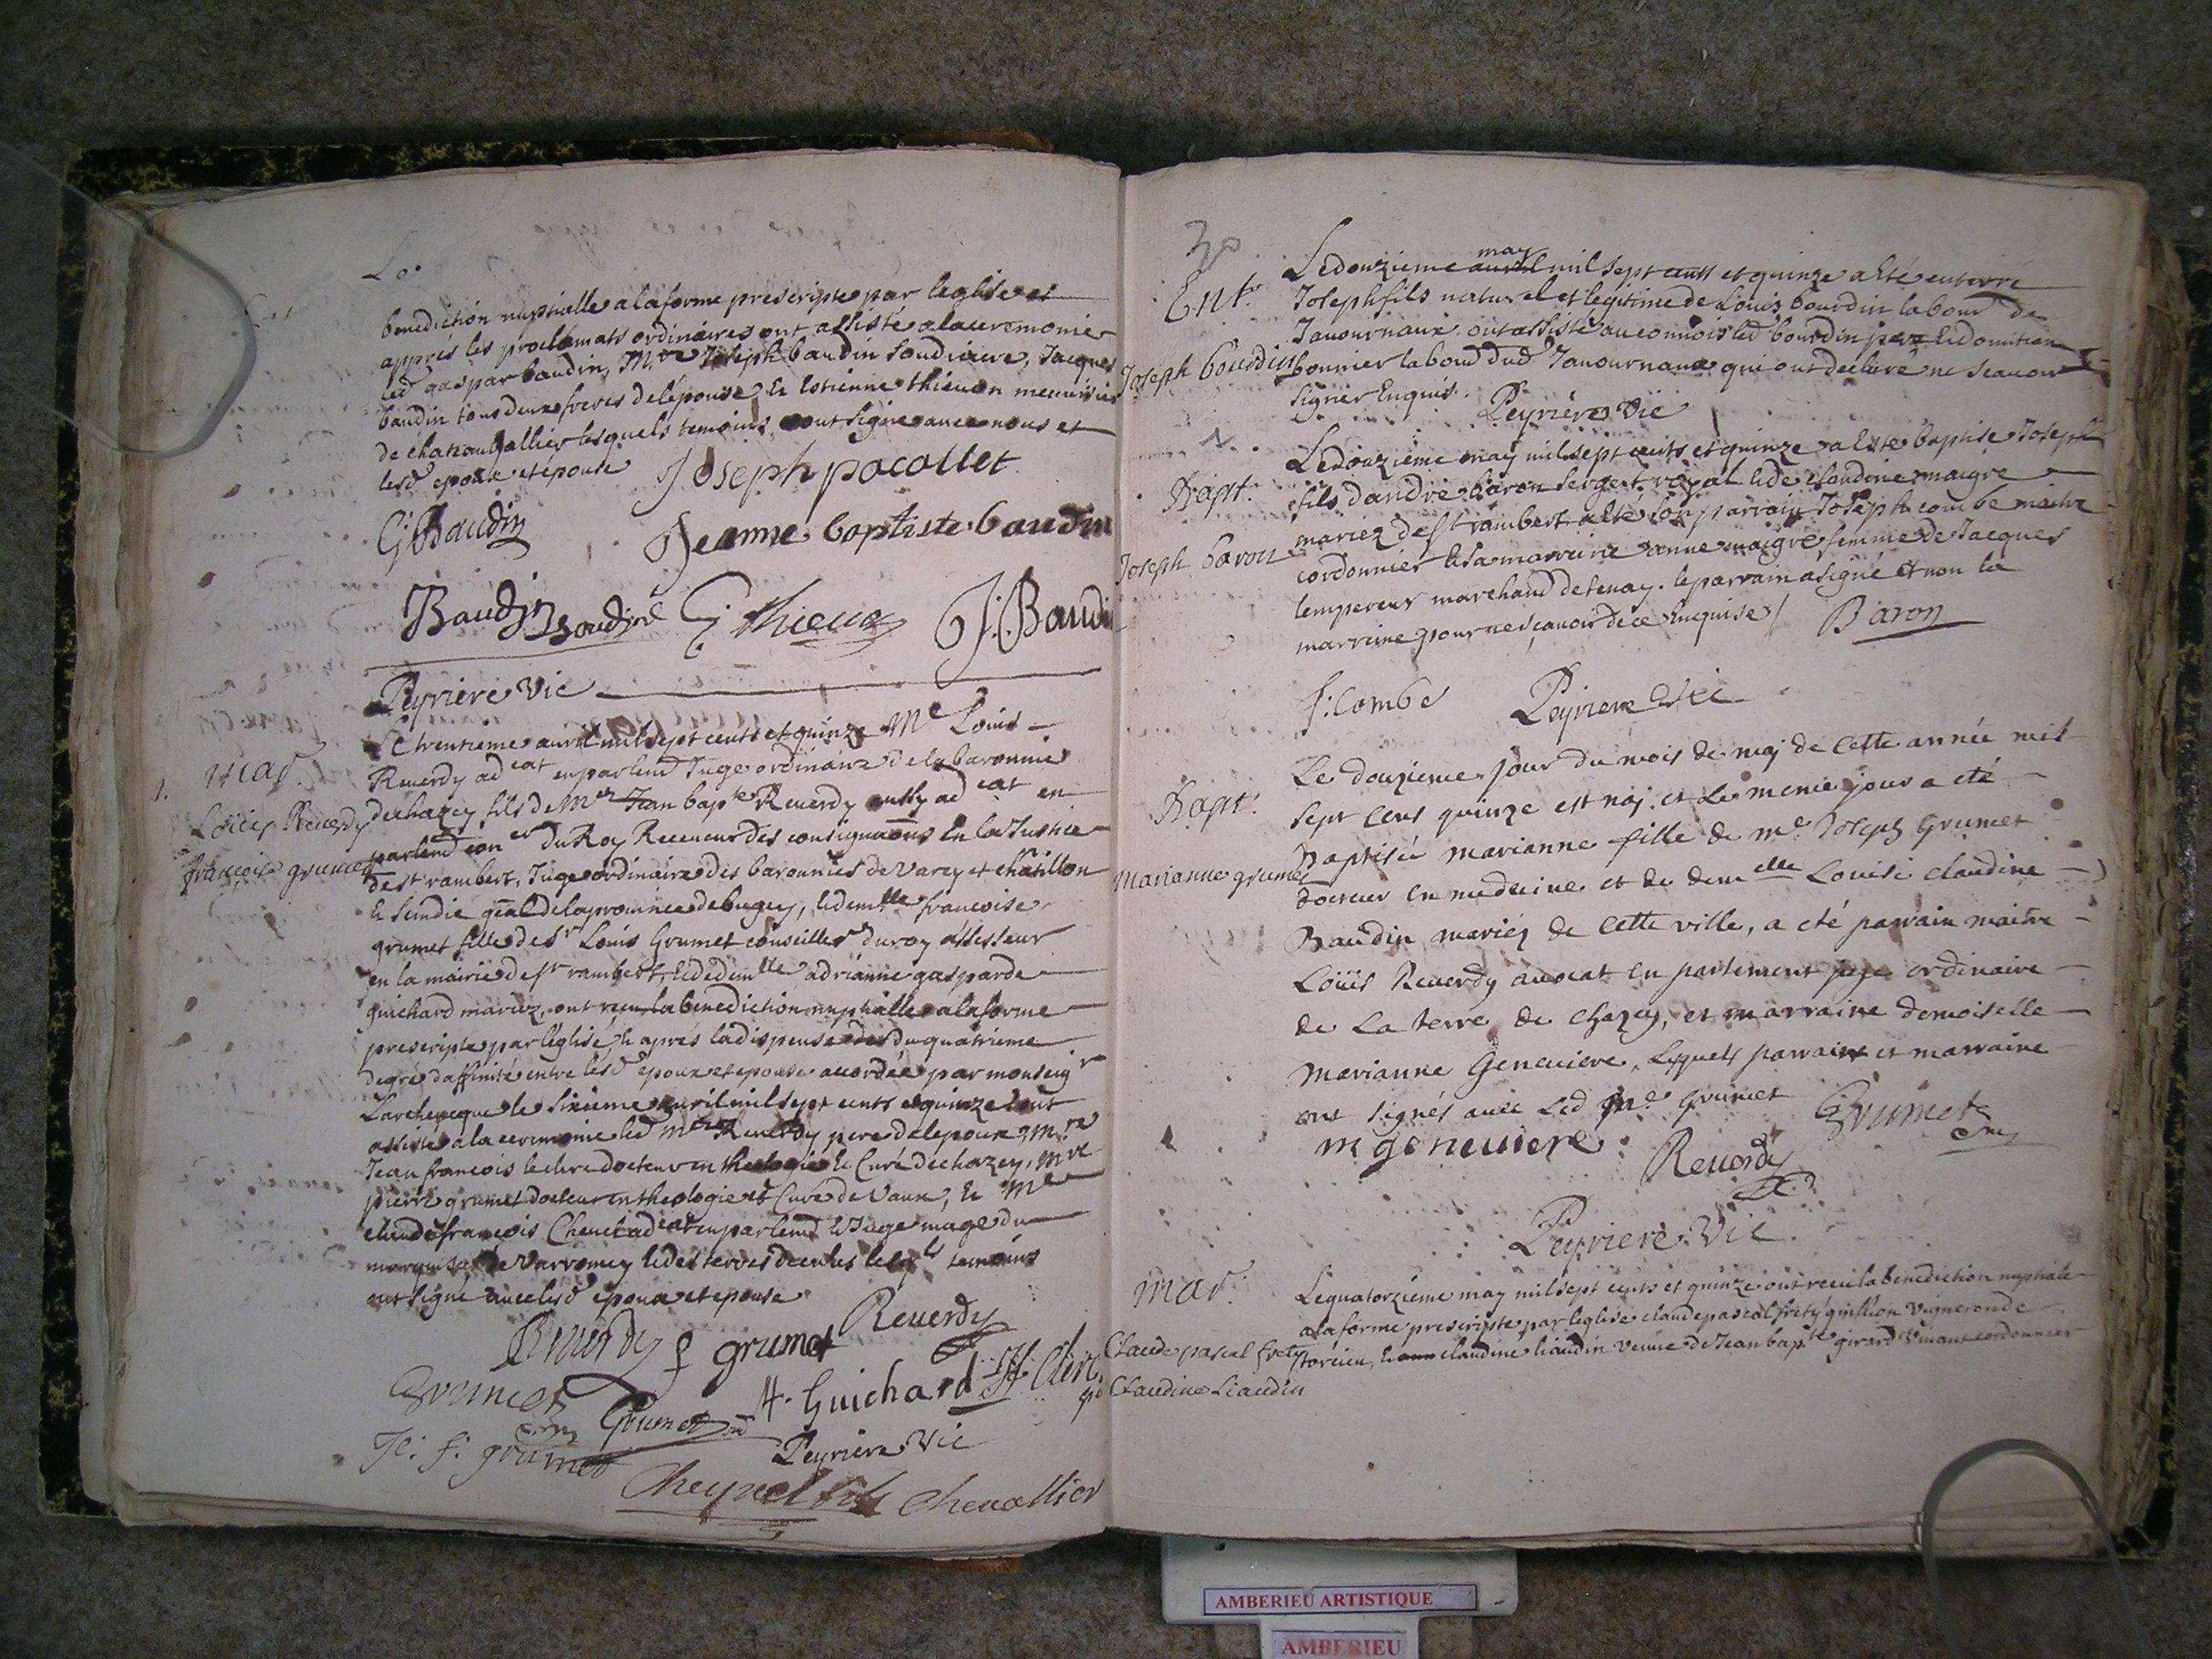 benediction nuptielle a la forme prescripte par leglise et
apprés les proclamats ordinaires ont assisté a la ceremonie
led gaspar baudin, Mre Joseph baudin soudiacre, Jacques
baudin tous deux freres de lépouse & Estienne thieuen menuisier
de lesquels temoins ont signe avec nous et
lesd epoux et epouse Joseph pocollet
G: Baudin Jeanne baptiste baudin
Baudin soudiacre E: thieuen J: Baudin
Peyriere Vic
Le trentieme avril mil sept cents et quinze Me Louis
1. Mar. Reuerdy adcat en parlend Juge ordinaire de la baronnie
Louis Reuerdy dechazey fils de Mer Jean bapte Reuerdy aussy adcat en
françoise grumet parlend coner du Roy Receveur des consignaons en la Justice
de st rambert, Juge ordinaire des baronnies de Varey et chatillon
& scindic gñal de la province de bugey, & demlle francoise
grumet fille de sr Louis Grumet conseiller du roy assesseur
en la mairie de st rambert, & de demlle adrianne gasparde
guichard mariez, ont receu la benediction nuptialle a la forme
prescripte par leglise, & aprés la dispense du quatrieme
degré daffinité entre lesd epoux et epouse accordée par monseigr
Larcheveque le sixieme avril mil sept cents et quinze &ont
assisté a la ceremonie led Reuerdy pere de lepoux, Mre
Jean francois leclerc docteur en theologie & Curé de chazey, Mre
pierre grumet docteur en theologie et Curé de Vaux, & Me
claude françois adcat en parlend & Juge mage du
marquisat de Varromey & des terres temoins
ont signé avec lesd epoux et epouse
Reuerdy f grumet Reuerdy
Grumet A. Guichard
Grumet
grumet Peyriere Vic
Cheynel fils chevallier
Ent. Le douzieme may mil sept cents et quinze a esté enterré
Joseph fils naturel et legitime de Louis bourdin labourd de
Javournaux ont assisté au convois led bourdin pere &
Joseph bourdin bonnier labourd dud Javournaux qui ont declaré ne scavoir
signer Enquis. Peyriere Vic
Le douzieme may mil sept cents et quinze a este baptisé Joseph
Bapt. fils dandré baron sergent royal & de claudine maigre
mariez de st rambert a eté son parrain Joseph combe maitre
Joseph baron cordonnier & sa marreine anne maigre femme de Jacques
lempereur marchand de tenay. le parrain a signé et non la
marreine pour ne scavoir de ce enquise / Baron
J: Combe Peyriere Vic
Le douzieme jour du mois de maj de cette année mil
Bapt. sept cens quinze est naj et le meme jour a eté
Baptisée marianne fille de me Joseph Grumet
Marianne grumet docteur en medecine et de demelle Louise claudine
Baudin mariéz de cette ville, a eté parrain maitre
Loüis Reuerdy avocat en parlement juge ordinaire
de La terre de chazey, et marraine demoiselle
marianne Geneviere, lesquels parrain et marraine
ont signés avec led me grumet Grumet
m geneviere Reuerdy
Peyriere Vic
mar. Le quatorzieme may mil sept cents et quinze ont receu la benediction nuptiale
a la forme prescripte par leglise claude pascal frety vigneron de
Claude pascal frety torcieu, & claudine liaudin veuve de Jean bapte girard vivant cordonnier
& Claudine Liaudin
AMBERIEU ARTISTIQUE
AMBERIEU